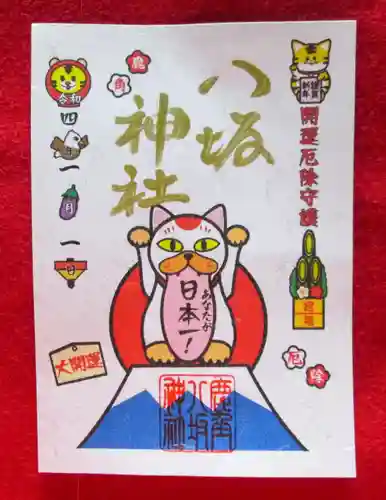 謹賀
新年
開運厄除守護
鹿
角
八坂
神社
令和
四
一
月
一
日
あなたが
日本一!
大開運
厄
除
鹿角
八坂